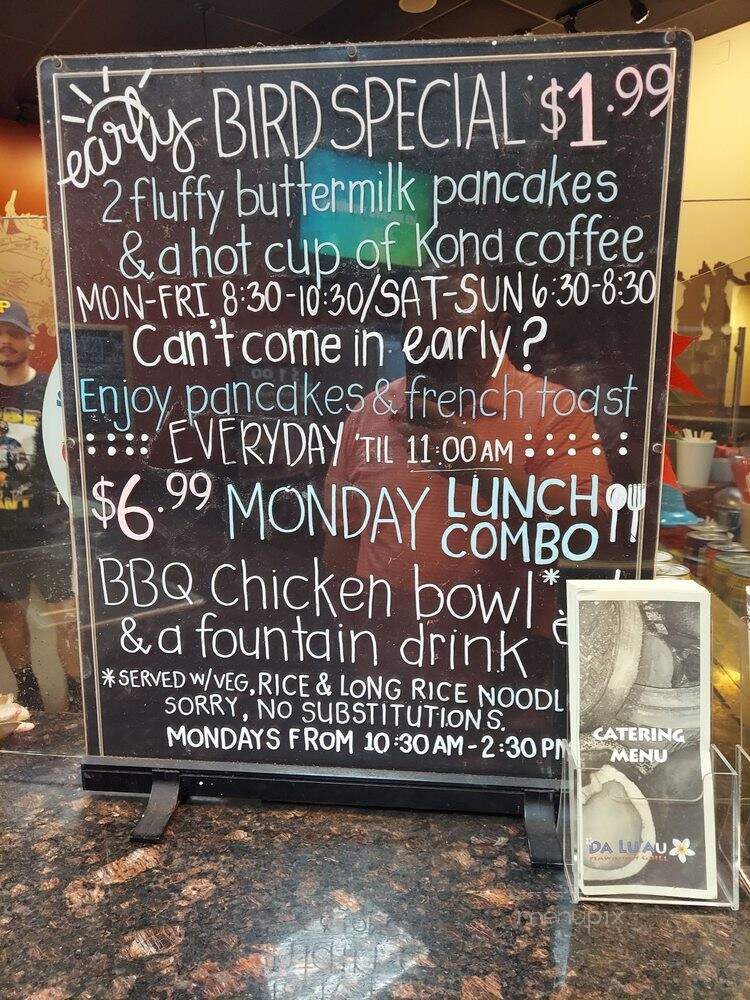 early BIRD SPECIAL $1.99
2 fluffy buttermilk pancakes
& a hot cup of Kona coffee
MON-FRI 8:30-10:30/SAT-SUN 6:30-8:30
Can't come in early?
Enjoy pancakes & french toast
EVERYDAY 'TIL 11:00 AM
$6.99 MONDAY LUNCH COMBO
BBQ Chicken bowl*
& a fountain drink
*SERVED W/VEG, RICE & LONG RICE NOODL
SORRY, NO SUBSTITUTIONS.
MONDAYS FROM 10:30 AM - 2:30 PM
CATERING
MENU
DA LU'AU
HAWAIIAN GRILL
menupix